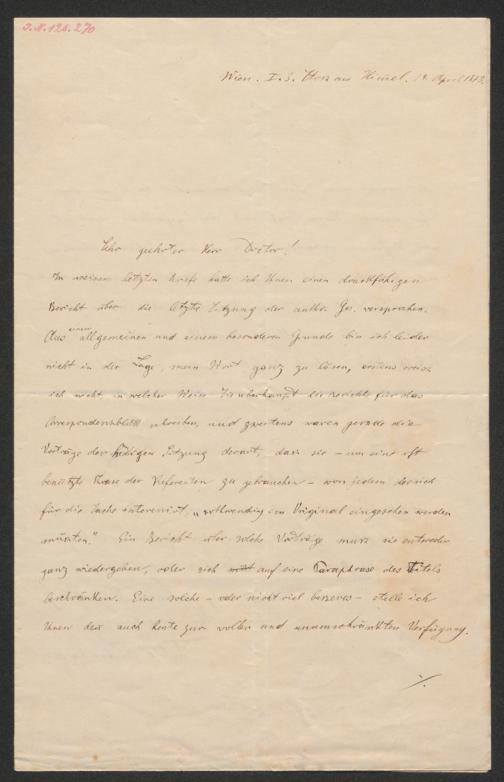 J.N. 126.270
Wien. I. S. Stern am Himmel. April
Sehr geehrter Herr Doctor!
In meinem letzten Briefe hatte ich Ihnen einen druckfähigen
Bericht über die letzte Sitzung der anthr. Ges. versprochen.
Aus einem allgemeinen und einem besonderen Grunde bin ich leider
nicht in der Lage, mein Wort ganz zu lösen, erstens weiss
ich nicht in welcher Weise Sie überhaupt die Berichte für das
Correspondenzblatt schreiben, und zweitens waren gerade die
Vorträge der Sitzung derart, dass sie – um eine oft
benützte Phrase der Referenten zu gebrauchen – von jedem der sich
für die Sache interessirt, „nothwendig im Original eingesehen werden
müssten." Ein Bericht über solche Vorträge muss sie entweder
ganz wiedergeben, oder sich auf eine Paraphrase des Titels
beschränken. Eine solche – oder nicht viel besseres – stelle ich
Ihnen denn auch heute zur vollen und unumschränkten Verfügung.
./.